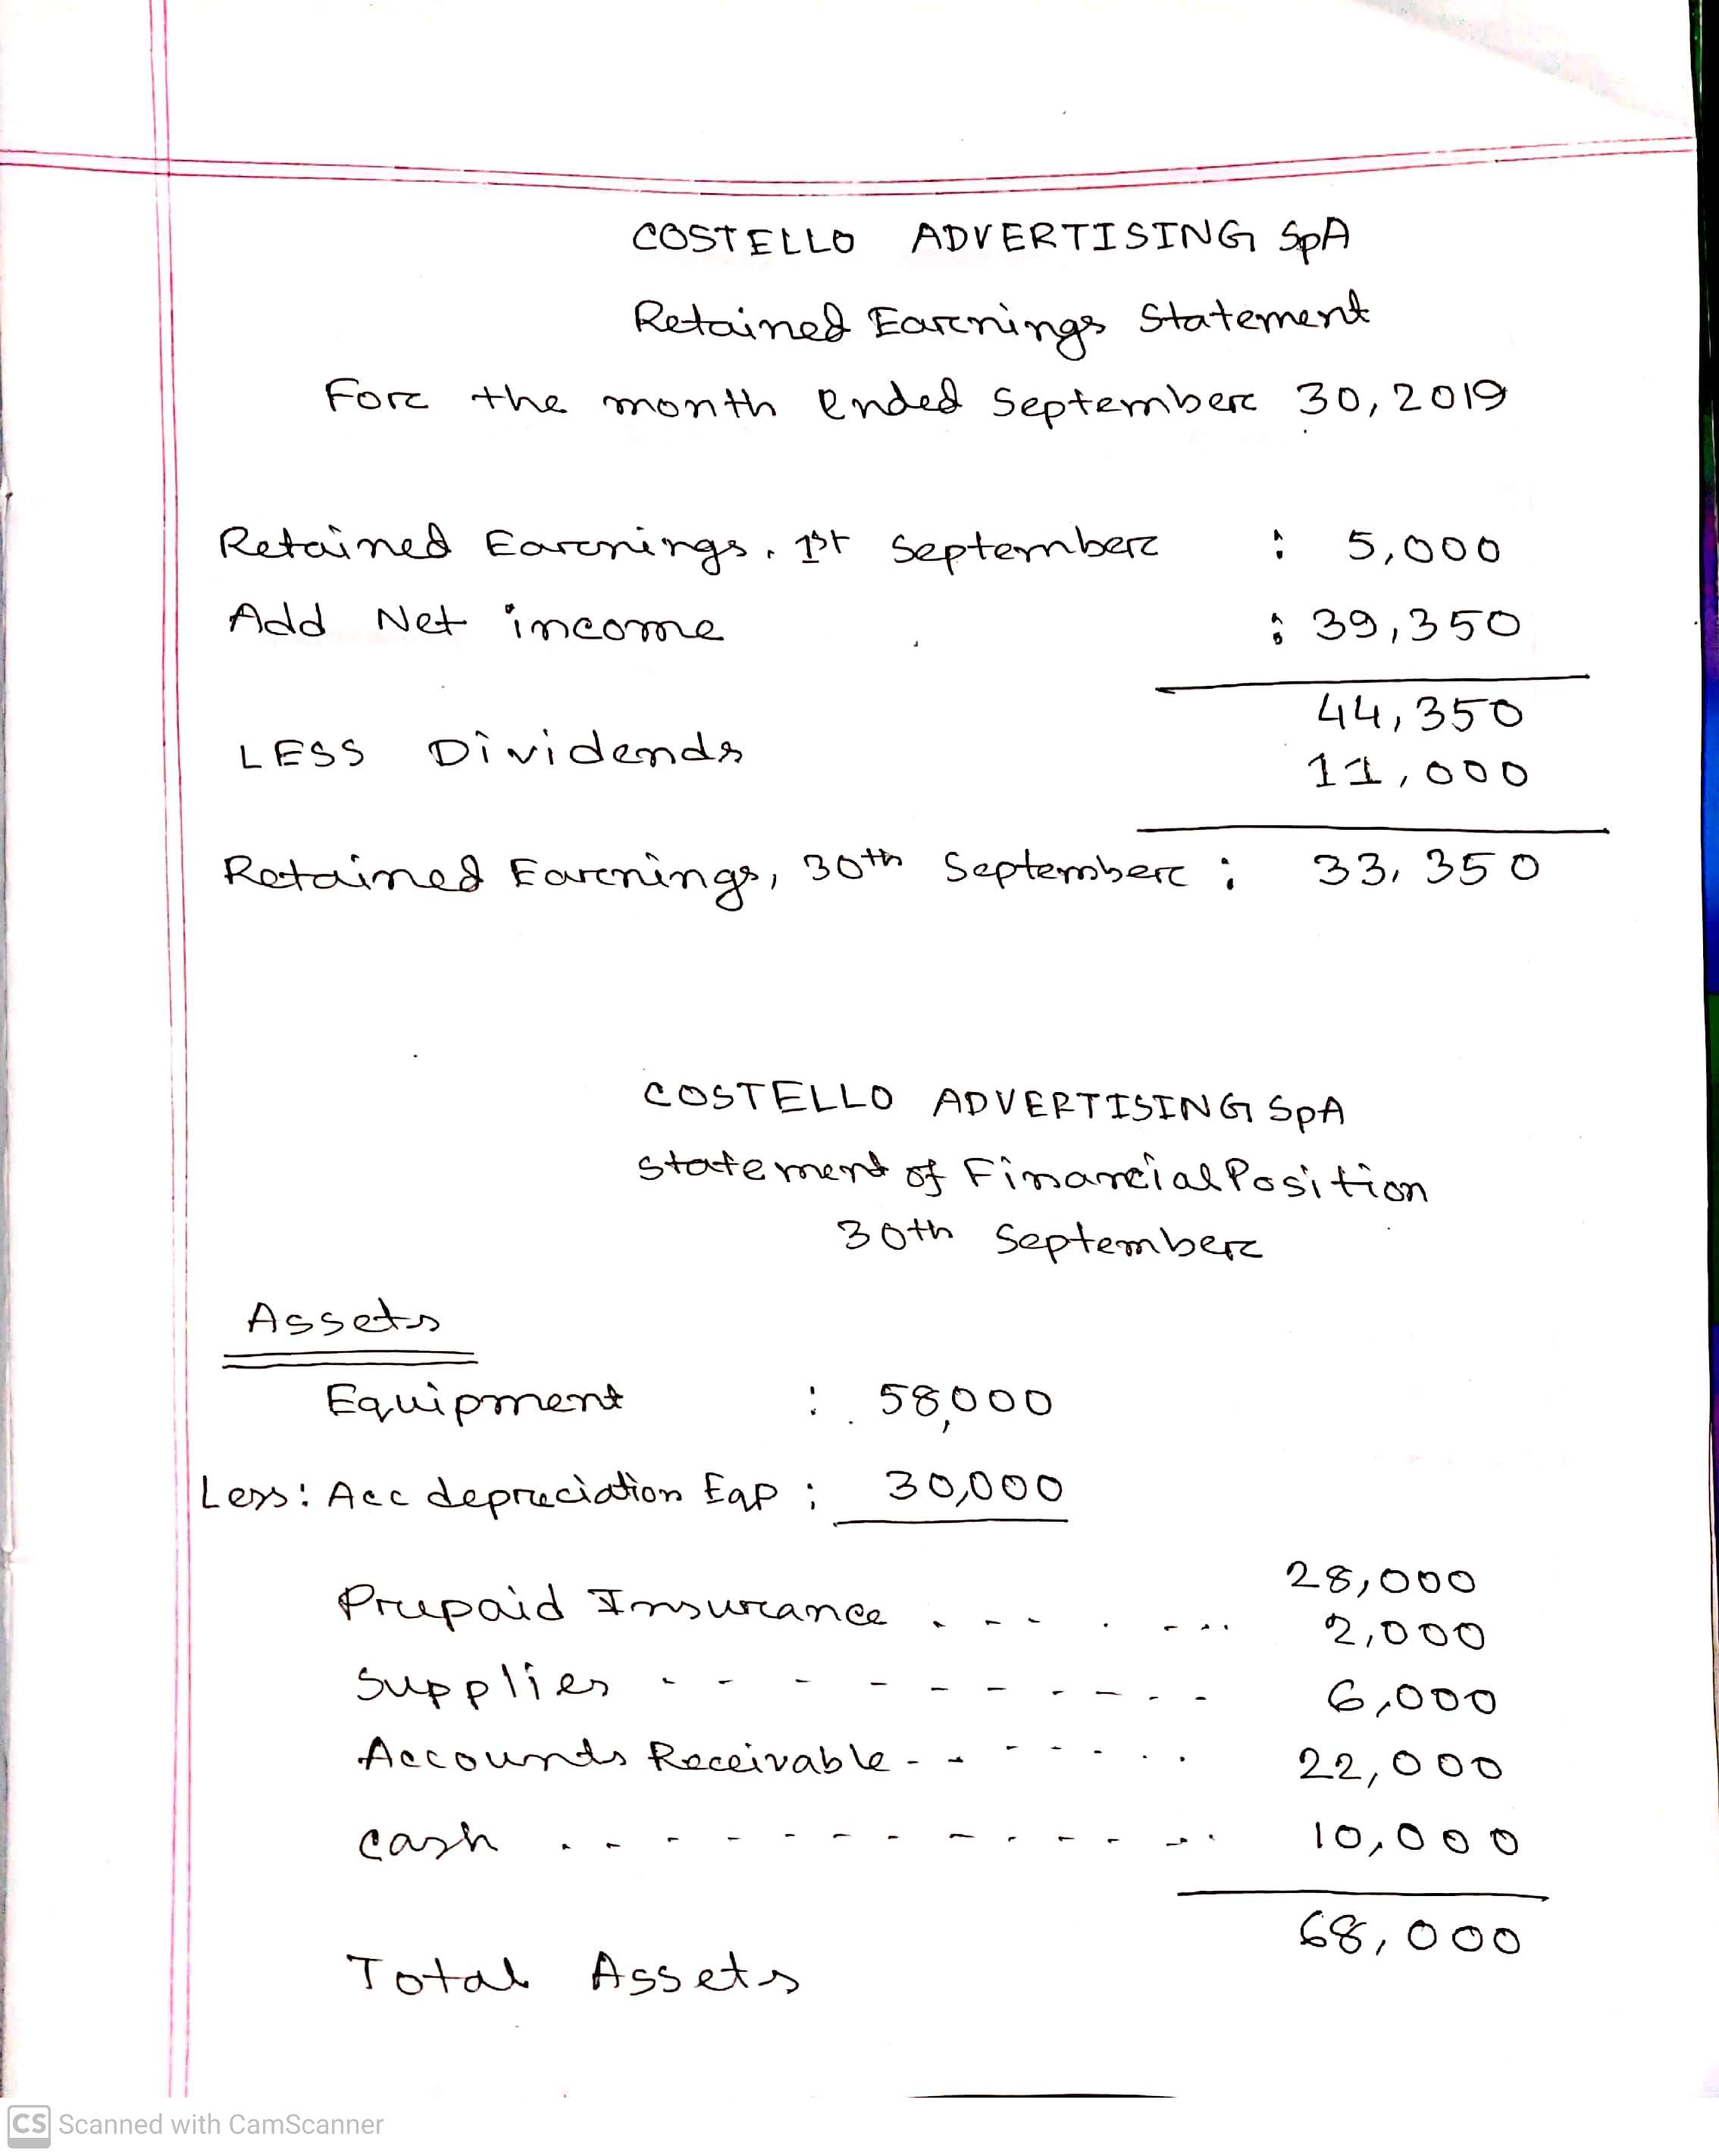 COSTELLO ADVERTISING SpA
Retained Earnings Statement
For the month ended September 30, 2019
Retained Earnings, 1st September : 5,000
Add Net income : 39,350
44,350
LESS Dividends
11,000
Retained Earnings, 30th September : 33,350
COSTELLO ADVERTISING SpA
Statement of Financial Position
30th September
Assets
Equipment : 58,000
Less: Acc depreciation Eqp : 30,000
28,000
Prepaid Insurance . - - . - . . . 2,000
Supplies - - - - - - - - - - 6,000
Accounts Receivable - - - - - . . 22,000
Cash . - - - - - - - - - - - . 10,000
68,000
Total Assets
CS Scanned with CamScanner